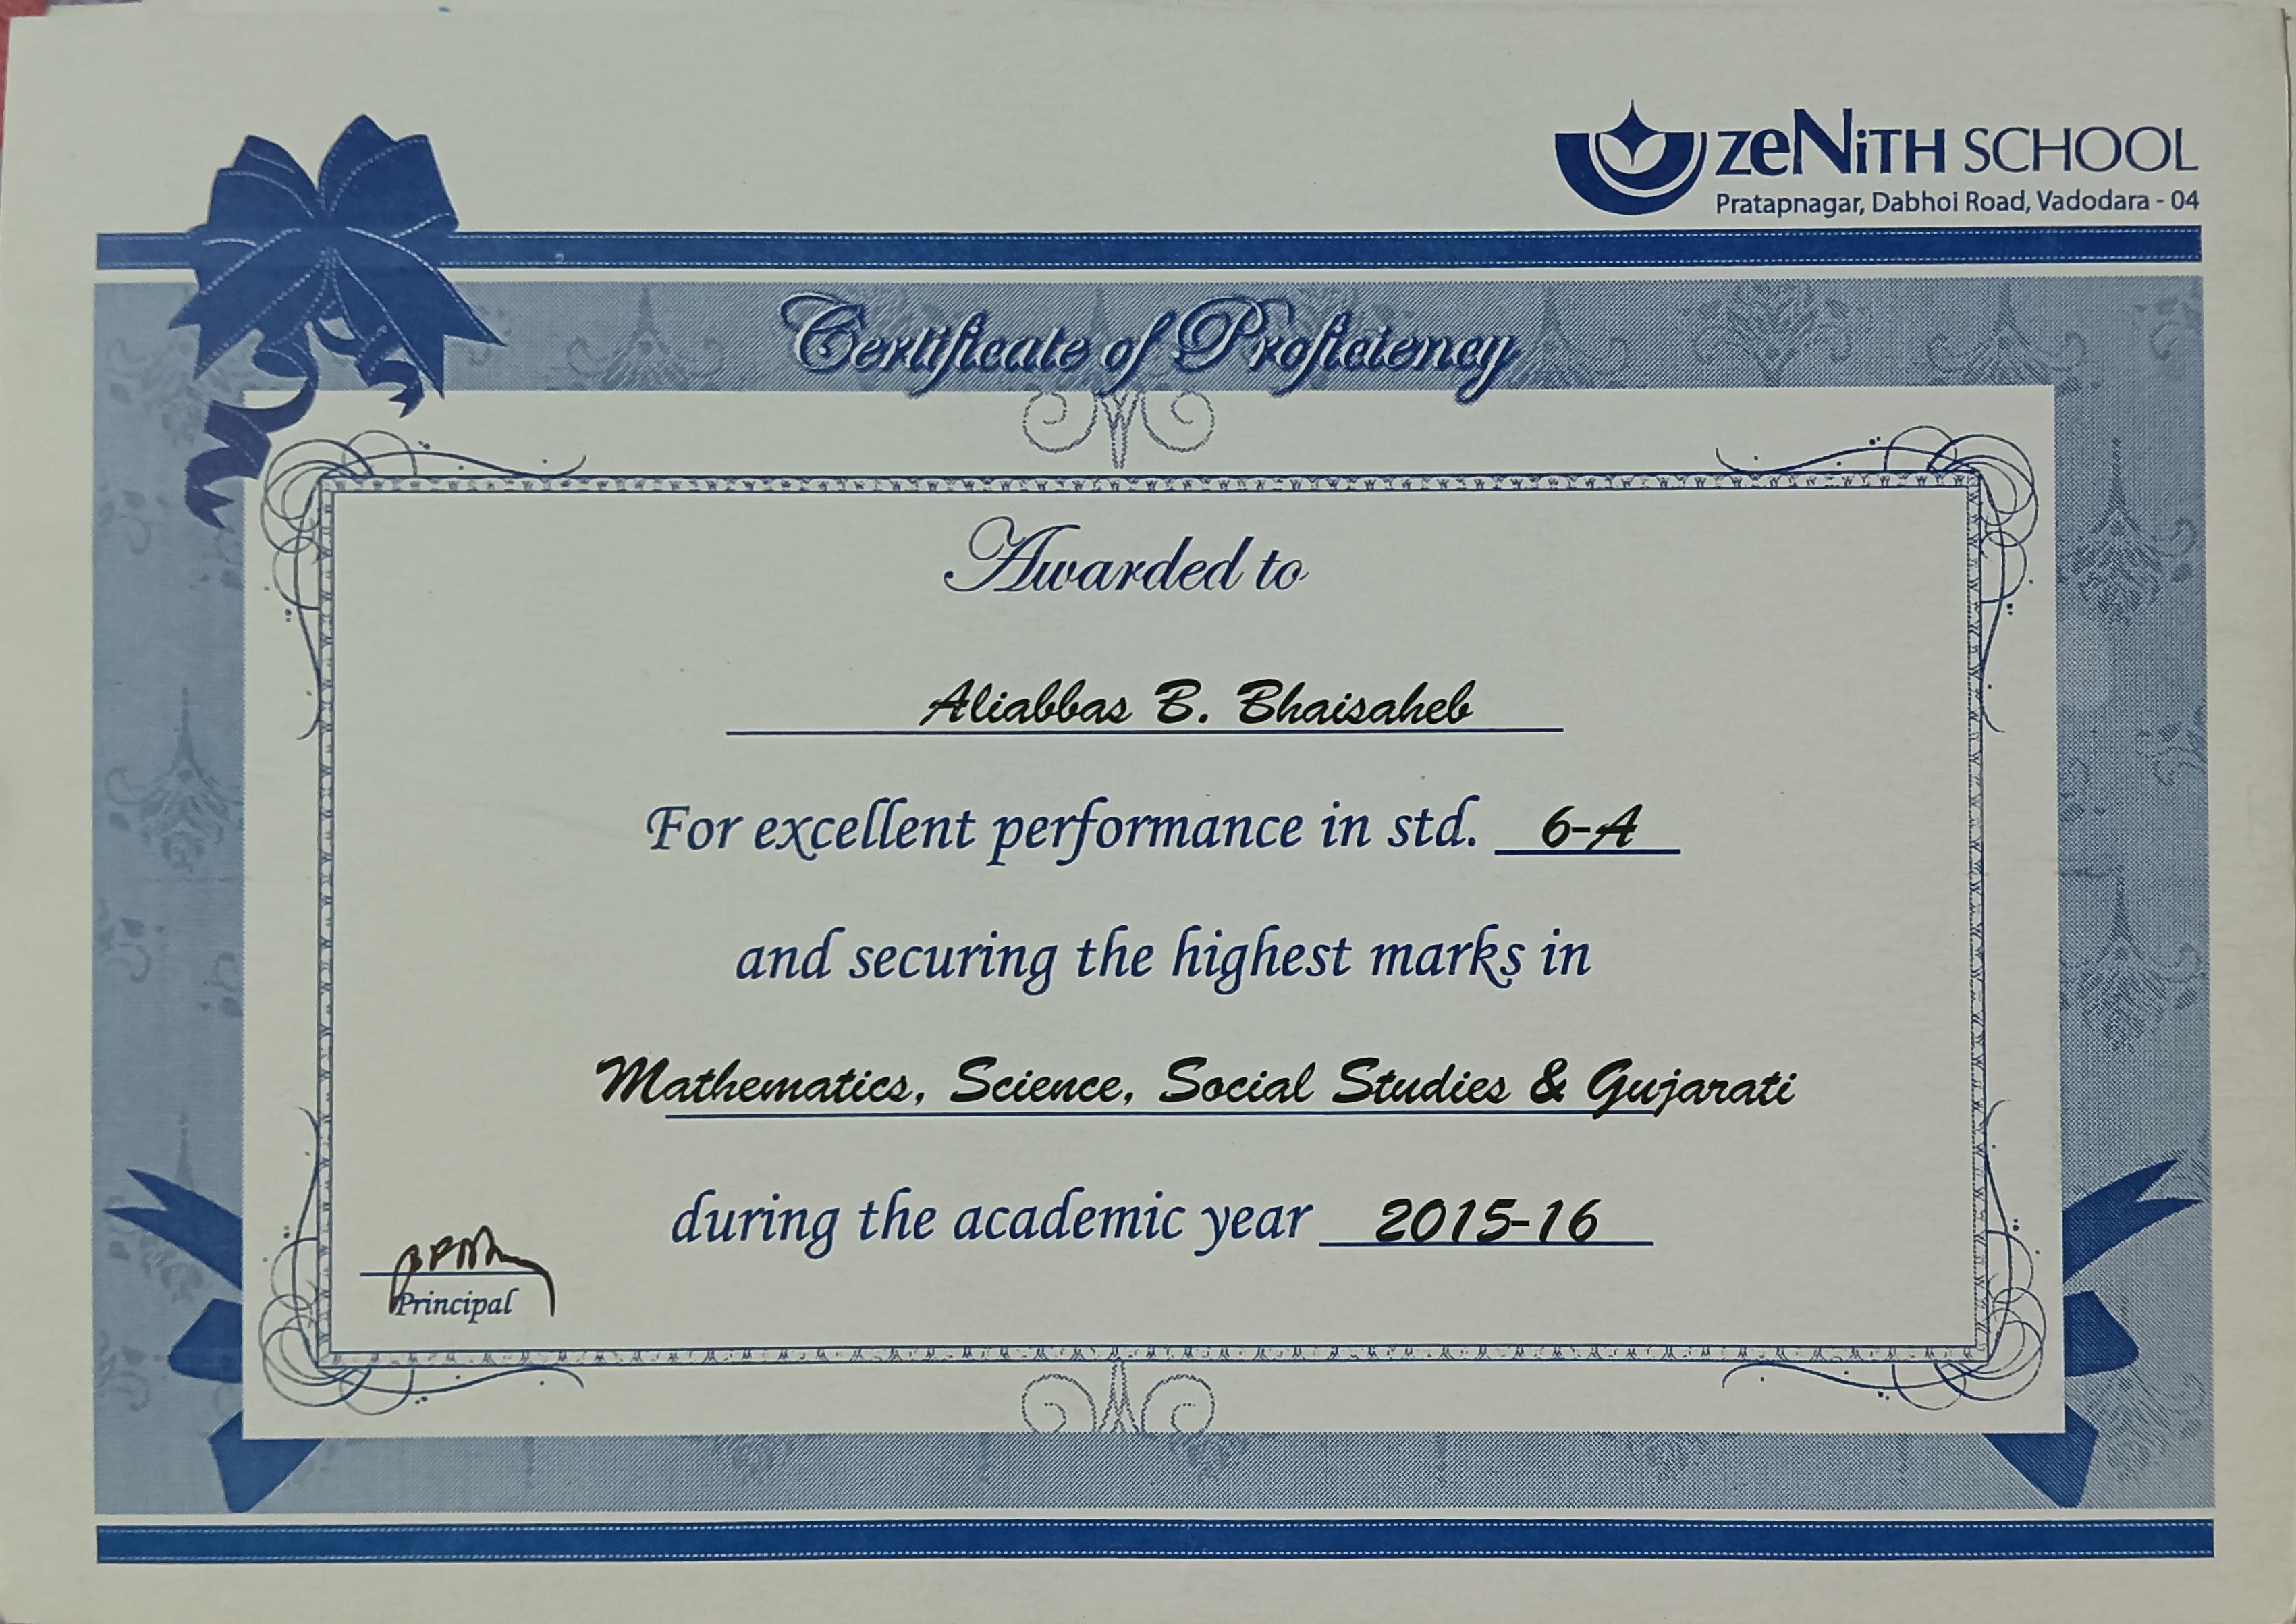 zeNiTH SCHOOL
Pratapnagar, Dabhoi Road, Vadodara - 04
Certificate of Proficiency
Awarded to
Aliabbas B. Bhaisaheb
For excellent performance in std. 6-A
and securing the highest marks in
Mathematics, Science, Social Studies & Gujarati
during the academic year 2015-16
Principal